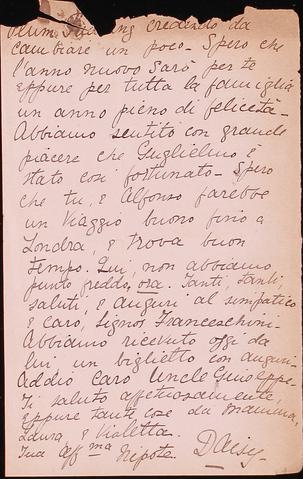 Plum Pudding credendo da
cambiare un poco - Spero che
l'anno nuovo sarà per te
eppure per tutta la famiglia
un anno pieno di felicità -
Abbiamo sentito con grande
piacere che Guglielmo è
stato così fortunato - Spero
che tu, e Alfonso farebbe
un viaggio buono fino a
Londra, e trova buon
tempo. Qui, non abbiamo
punto freddo, ora. Tanti, tanti,
saluti, e auguri al simpatico
e caro, Signor Franceschini -
Abbiamo ricevuto oggi da
lui un biglietto con auguri -
Addio caro Uncle Giuseppe
Ti saluto affettuosamente,
eppure tante cose da Mamma,
Laura, e Violetta.
Tua affma Nipote. Daisy